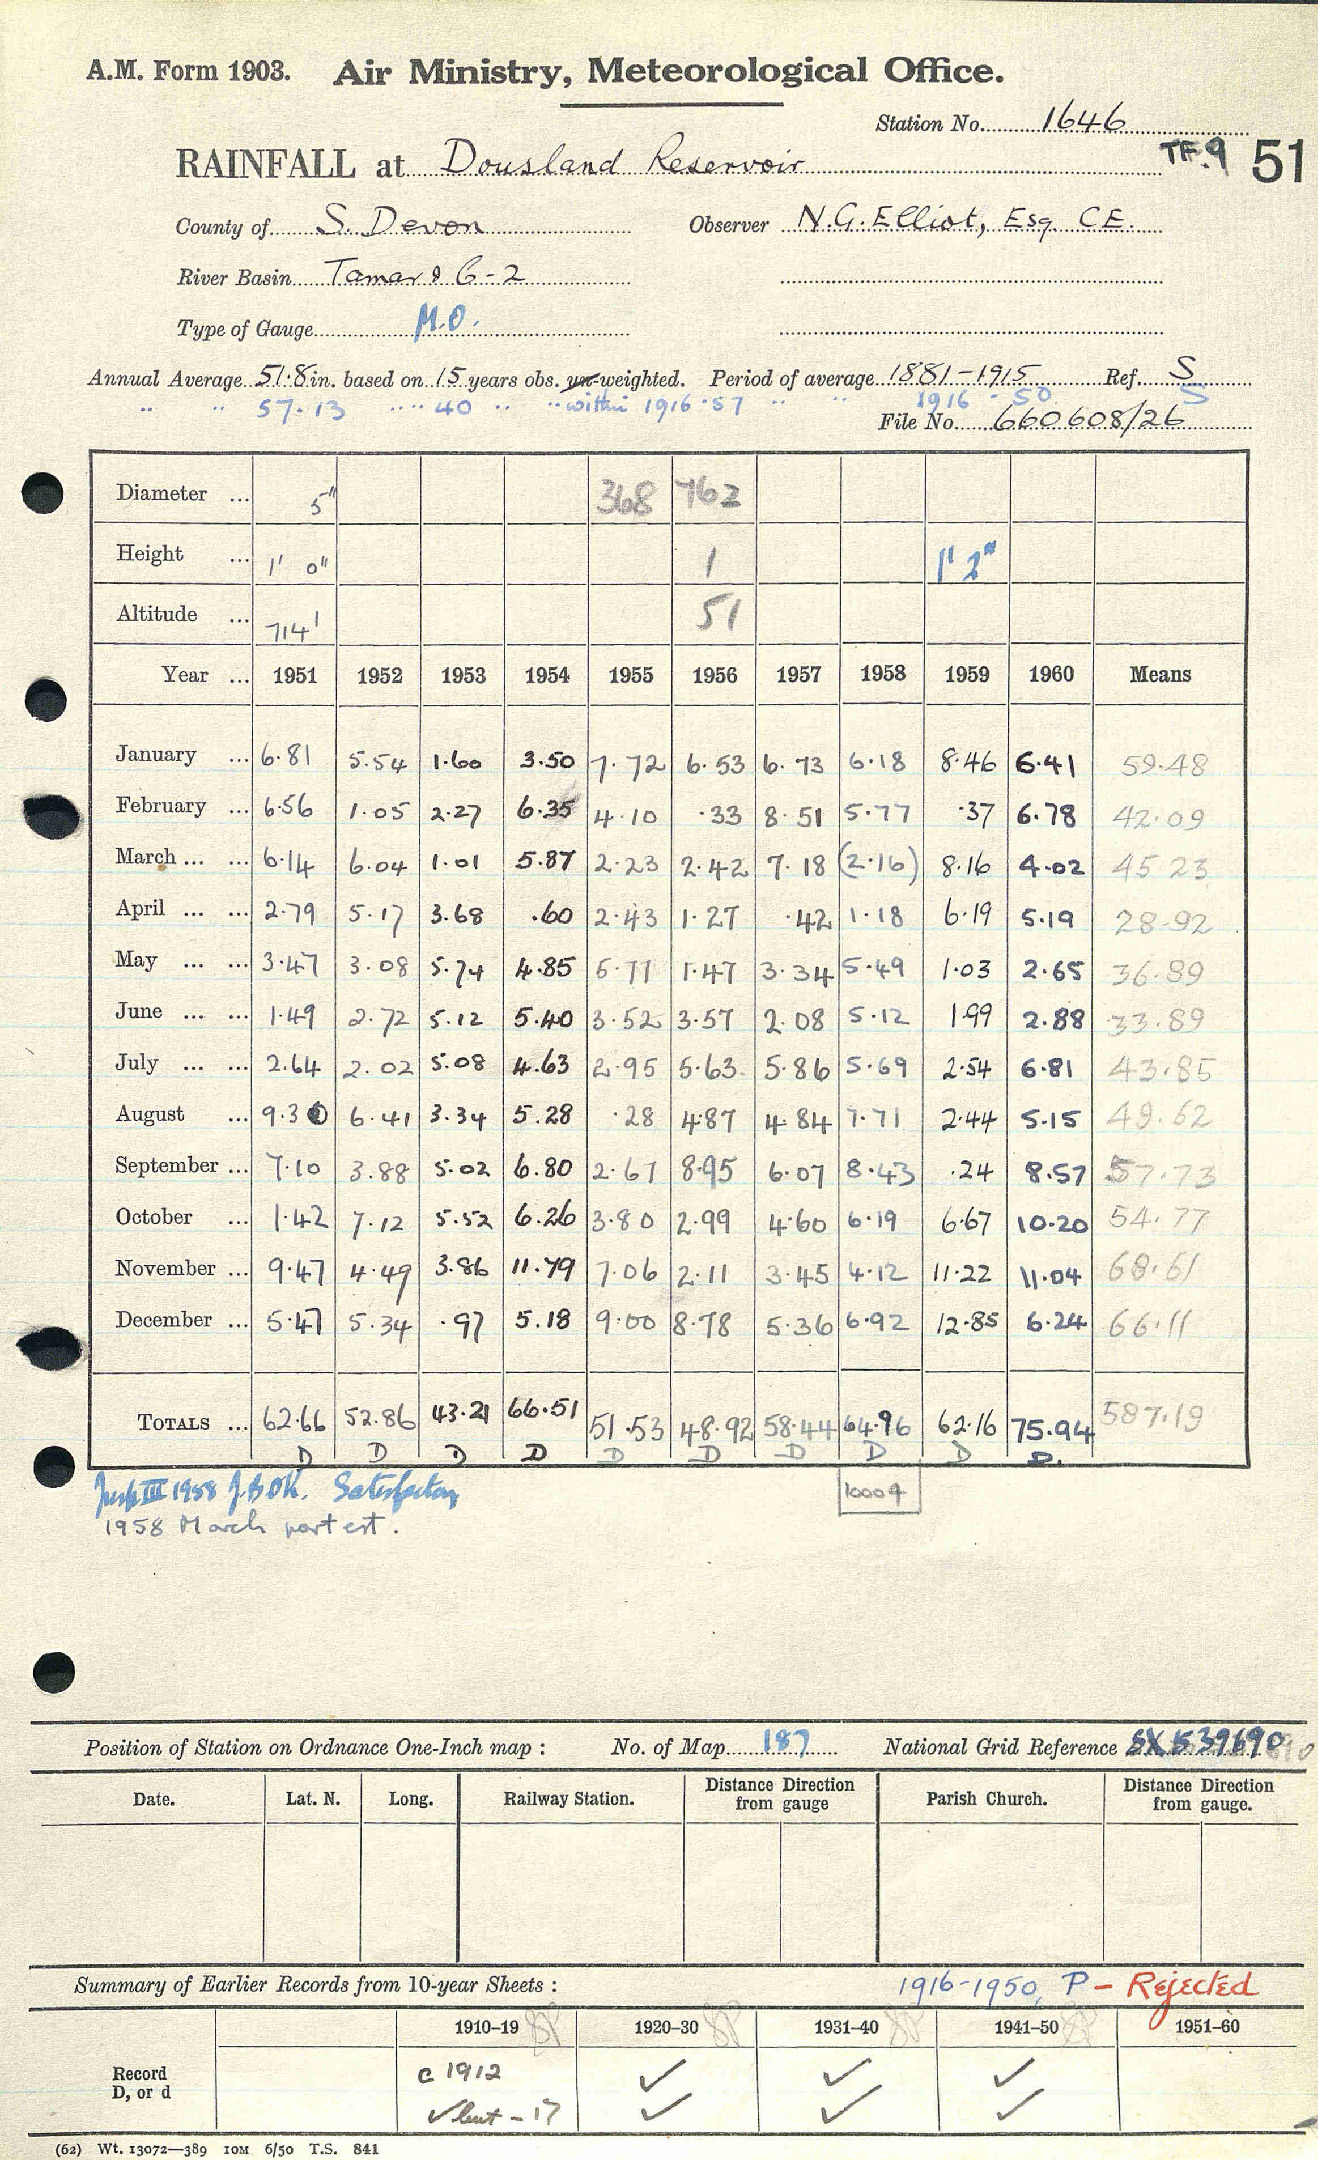 A.M. Form 1903. Air Ministry, Meteorological Office.
Station No. 1646
RAINFALL at Dousland Reservoir TF.9 51
County of S. Devon Observer N.G. Elliot, Esq. C.E.
River Basin Tamar & 6-2
Type of Gauge M.O.
Annual Average 51.8 in. based on 15 years obs. un-weighted. Period of average 1881-1915 Ref. S
" " 57.13 " " 40 " " within 1916-57 " " 1916-50 S
File No. 660608/26
Diameter ... 5" 368 762
Height ... 1' 0" 1 1' 2"
Altitude ... 714' 51
Year ... 1951 1952 1953 1954 1955 1956 1957 1958 1959 1960 Means
January ... 6.81 5.54 1.60 3.50 7.72 6.53 6.73 6.18 8.46 6.41 59.48
February ... 6.56 1.05 2.27 6.35 4.10 .33 8.51 5.77 .37 6.78 42.09
March ... ... 6.14 6.04 1.01 5.87 2.23 2.42 7.18 (2.16) 8.16 4.02 45.23
April ... ... 2.79 5.17 3.68 .60 2.43 1.27 .42 1.18 6.19 5.19 28.92
May ... ... 3.47 3.08 5.74 4.85 5.77 1.47 3.34 5.49 1.03 2.65 36.89
June ... ... 1.49 2.72 5.12 5.40 3.52 3.57 2.08 5.12 1.99 2.88 33.89
July ... ... 2.64 2.02 5.08 4.63 2.95 5.63 5.86 5.69 2.54 6.81 43.85
August ... 9.30 6.41 3.34 5.28 .28 4.87 4.84 7.71 2.44 5.15 49.62
September ... 7.10 3.88 5.02 6.80 2.67 8.95 6.07 8.43 .24 8.57 57.73
October ... 1.42 7.12 5.52 6.26 3.80 2.99 4.60 6.19 6.67 10.20 54.77
November ... 9.47 4.49 3.86 11.79 7.06 2.11 3.45 4.12 11.22 11.04 68.61
December ... 5.47 5.34 .97 5.18 9.00 8.78 5.36 6.92 12.85 6.24 66.11
TOTALS ... 62.66 52.86 43.21 66.51 51.53 48.92 58.44 64.96 62.16 75.94 587.19
D D D D D D D D D D.
Insp III 1958 Satisfactory
10009
1958 March part est.
Position of Station on Ordnance One-Inch map : No. of Map 187 National Grid Reference SX 539690
Date. Lat. N. Long. Railway Station. Distance from gauge Direction Parish Church. Distance from gauge. Direction
Summary of Earlier Records from 10-year Sheets : 1916-1950, P - Rejected
1910–19 1920–30 1931–40 1941–50 1951–60
Record c 1912 ✓ ✓ ✓
D, or d ✓ but - 17 ✓ ✓ ✓
(62) Wt. 13072—389 10M 6/50 T.S. 841